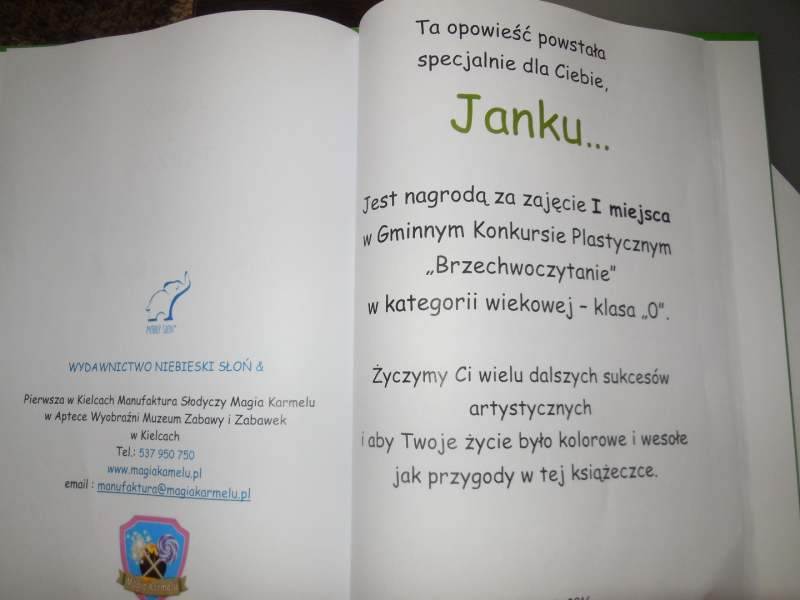 NIEBIESKI SŁOŃ
WYDAWNICTWO NIEBIESKI SŁOŃ &
Pierwsza w Kielcach Manufaktura Słodyczy Magia Karmelu
w Aptece Wyobraźni Muzeum Zabawy i Zabawek
w Kielcach
Tel.: 537 950 750
www.magiakamelu.pl
email : manufaktura@magiakarmelu.pl
Magia Karmelu
Ta opowieść powstała
specjalnie dla Ciebie,
Janku...
Jest nagrodą za zajęcie I miejsca
w Gminnym Konkursie Plastycznym
„Brzechwoczytanie"
w kategorii wiekowej – klasa „0".
Życzymy Ci wielu dalszych sukcesów
artystycznych
i aby Twoje życie było kolorowe i wesołe
jak przygody w tej książeczce.